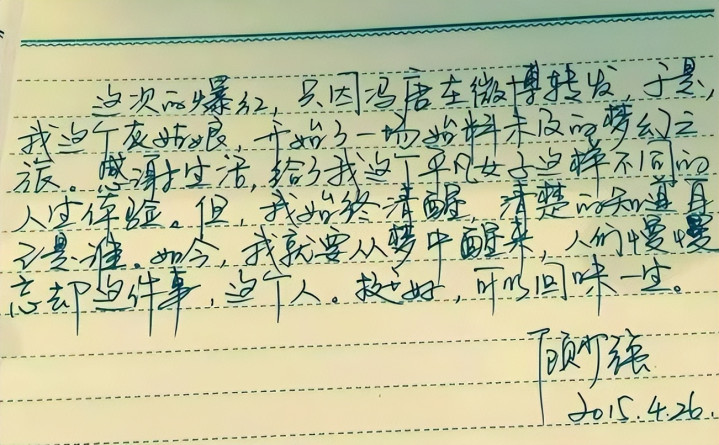 这次的爆红，只因冯唐在微博转发，于是，
我这个灰姑娘，开始了一场始料未及的梦幻之
旅。感谢生活，给了我这个平凡女子这样不同的
人生体验。但，我始终清醒，清楚的知道自
己是谁。如今，我就要从梦中醒来，人们慢慢
忘却这件事，这个人。挺好，可以回味一生。
顾强
2015.4.26.